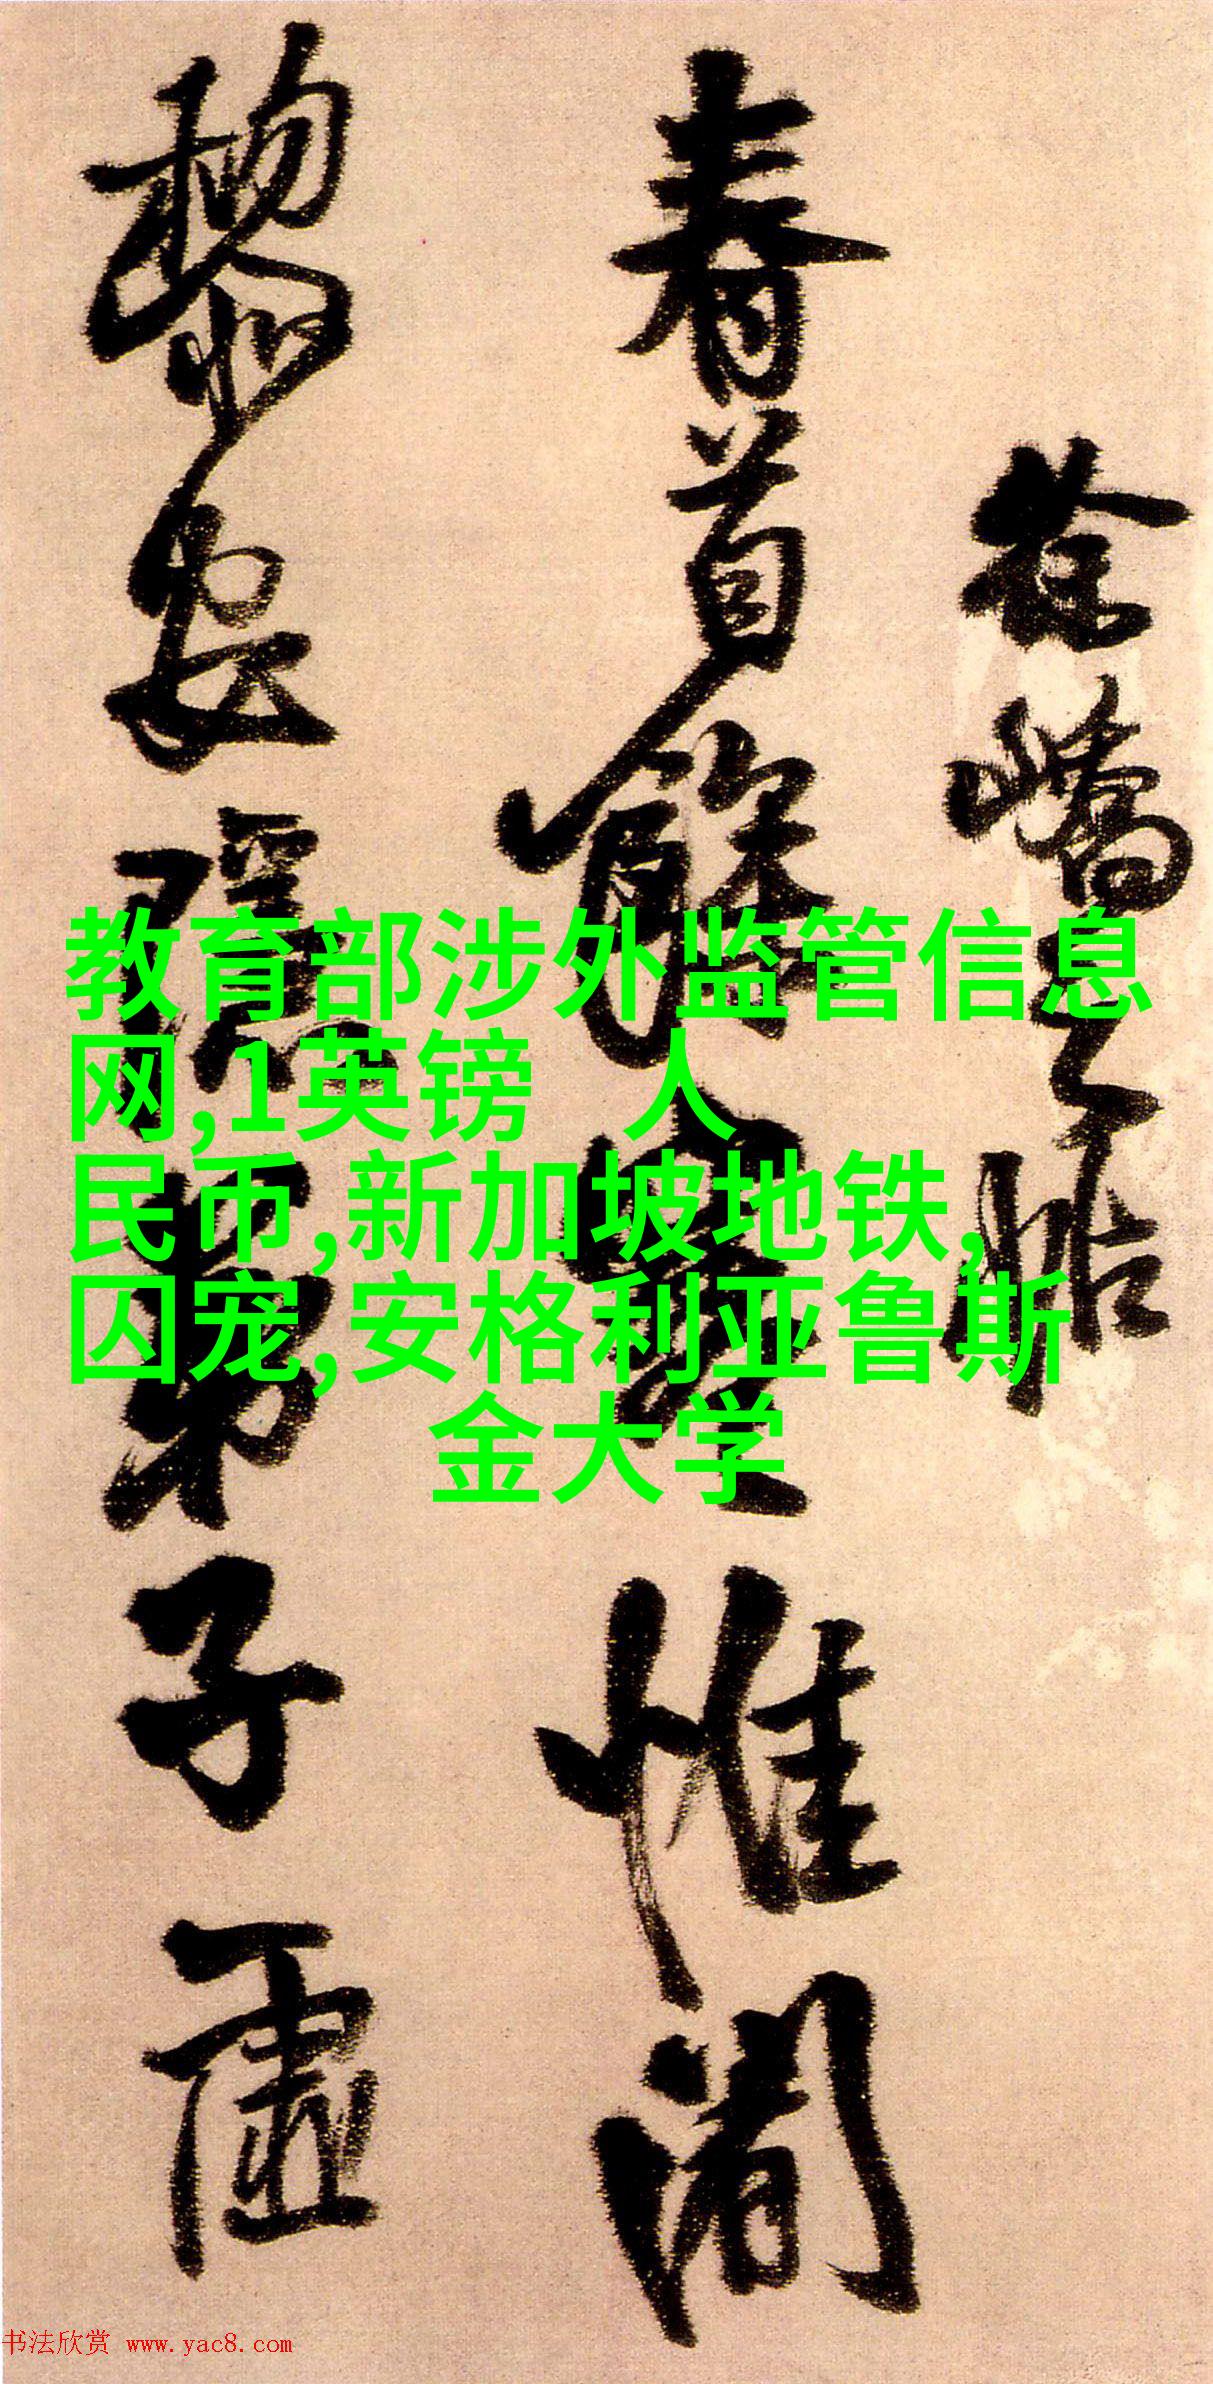 徐嶠之帖
春首餘寒惟闍
黎安隱弟子虛
教育部涉外监管信息
网,1英镑 人
民币,新加坡地铁,
囚宠,安格利亚鲁斯
金大学
书法欣赏 www.yac8.com